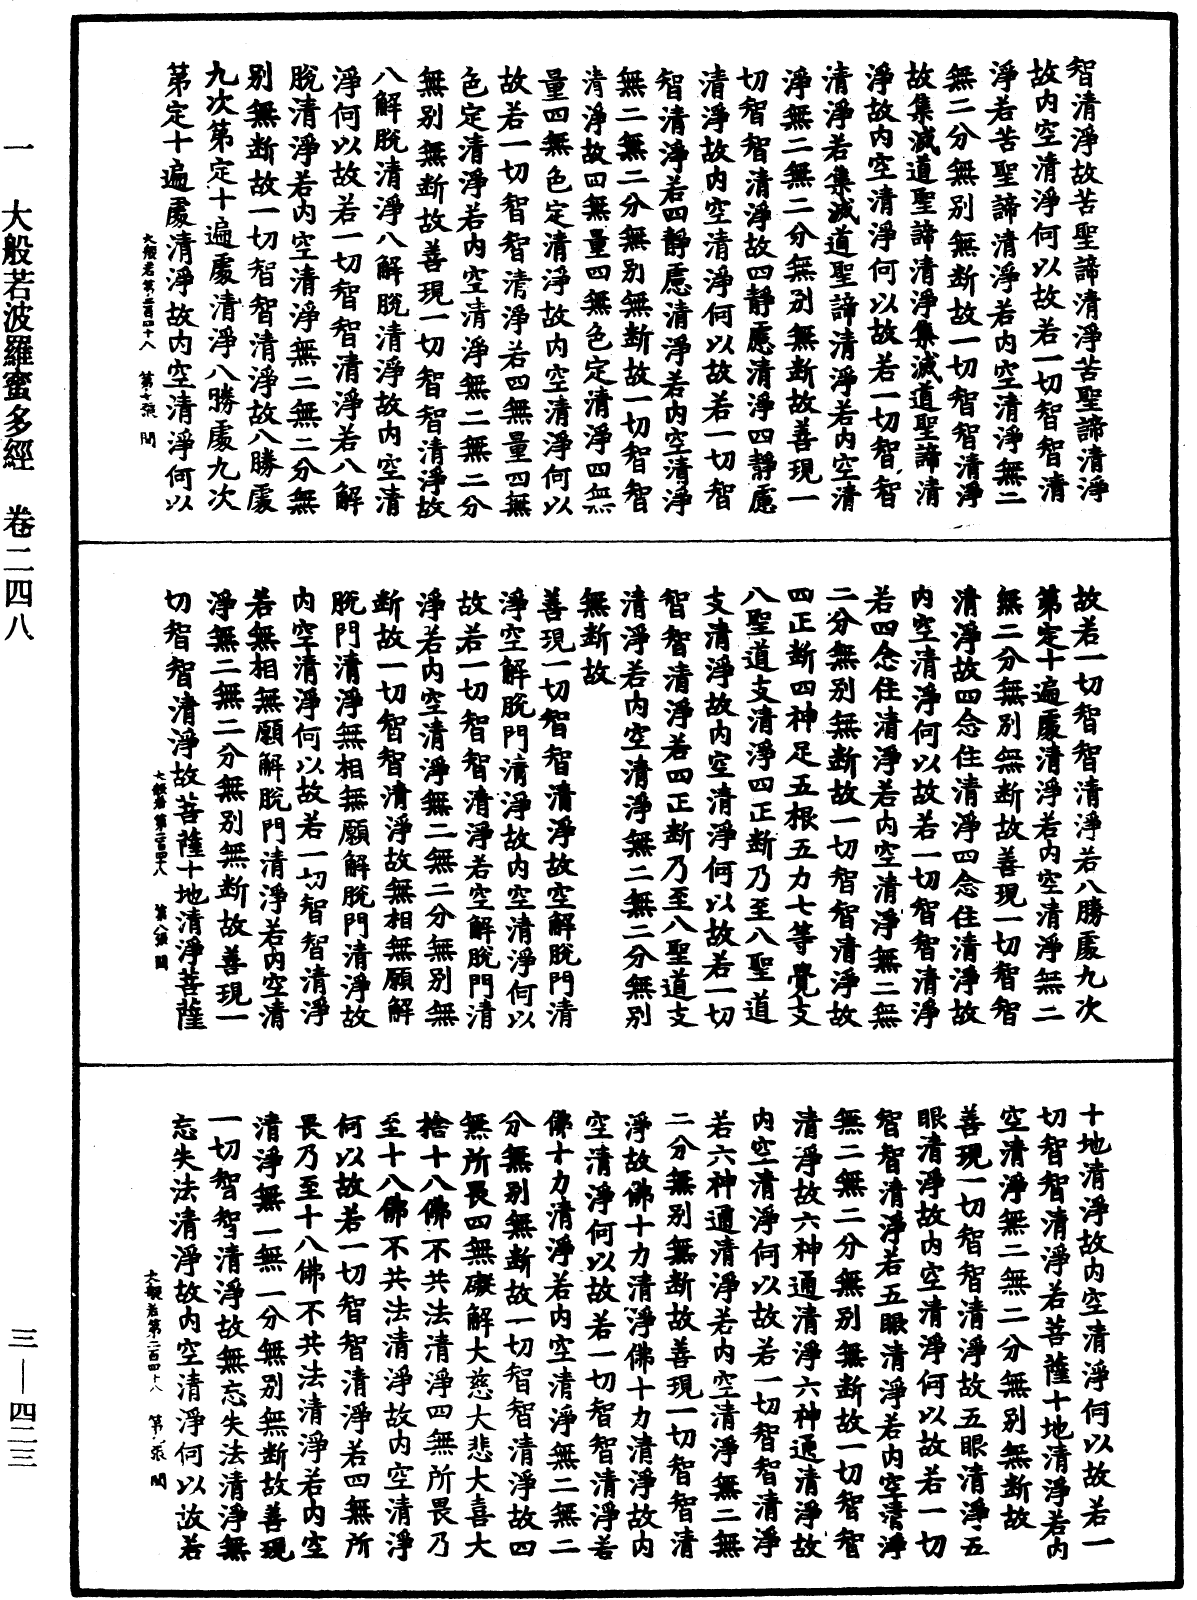 智清淨故苦聖諦清淨苦聖諦清淨
故内空清淨何以故若一切智智清
淨若苦聖諦清淨若内空清淨無二
無二分無別無断故一切智智清淨
故集滅道聖諦清淨集滅道聖諦清
淨故内空清淨何以故若一切智智
清淨若集滅道聖諦清淨若内空清
淨無二無二分無別無断故善現一
切智智清淨故四靜慮清淨四靜慮
清淨故内空清淨何以故若一切智
智清淨若四靜慮清淨若内空清淨
無二無二分無別無断故一切智智
清淨故四無量四無色定清淨四無
量四無色定清淨故内空清淨何以
故若一切智智清淨若四無量四無
色定清淨若内空清淨無二無二分
無別無断故善現一切智智清淨故
八解脫清淨八解脫清淨故内空清
淨何以故若一切智智清淨若八解
脫清淨若内空清淨無二無二分無
別無断故一切智智清淨故八勝處
九次第定十遍處清淨八勝處九次
第定十遍處清淨故内空清淨何以
大般若第二百四十八 第七張 閏
故若一切智智清淨若八勝處九次
第定十遍處清淨若内空清淨無二
無二分無別無断故善現一切智智
清淨故四念住清淨四念住清淨故
内空清淨何以故若一切智智清淨
若四念住清淨若内空清淨無二無
二分無別無断故一切智智清淨故
四正断四神足五根五力七等覺支
八聖道支清淨四正断乃至八聖道
支清淨故内空清淨何以故若一切
智智清淨若四正断乃至八聖道支
清淨若内空清淨無二無二分無別
無断故
善現一切智智清淨故空解脫門清
淨空解脫門清淨故内空清淨何以
故若一切智智清淨若空解脫門清
淨若内空清淨無二無二分無別無
断故一切智智清淨故無相無願解
脫門清淨無相無願解脫門清淨故
内空清淨何以故若一切智智清淨
若無相無願解脫門清淨若内空清
淨無二無二分無別無断故善現一
切智智清淨故菩薩十地清淨菩薩
大般若第二百四十八 第八張 閏
十地清淨故内空清淨何以故若一
切智智清淨若菩薩十地清淨若内
空清淨無二無二分無別無断故
善現一切智智清淨故五眼清淨五
眼清淨故内空清淨何以故若一切
智智清淨若五眼清淨若内空清淨
無二無二分無別無断故一切智智
清淨故六神通清淨六神通清淨故
内空清淨何以故若一切智智清淨
若六神通清淨若内空清淨無二無
二分無別無断故善現一切智智清
淨故佛十力清淨佛十力清淨故内
空清淨何以故若一切智智清淨若
佛十力清淨若内空清淨無二無二
分無別無断故一切智智清淨故四
無所畏四無礙解大慈大悲大喜大
捨十八佛不共法清淨四無所畏乃
至十八佛不共法清淨故内空清淨
何以故若一切智智清淨若四無所
畏乃至十八佛不共法清淨若内空
清淨無二無二分無別無断故善現
一切智智清淨故無忘失法清淨無
忘失法清淨故内空清淨何以故若
大般若第二百四十八 第 張 閏
一 大般若波羅蜜多經 卷二四八 三—四二三